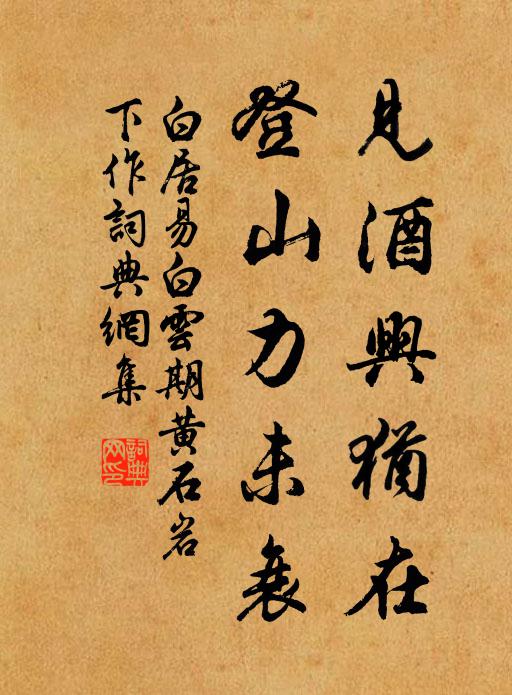 見酒興猶在
登山力未衰
白居易白雲期黄石岩
下作詞典網集
詞典
网印